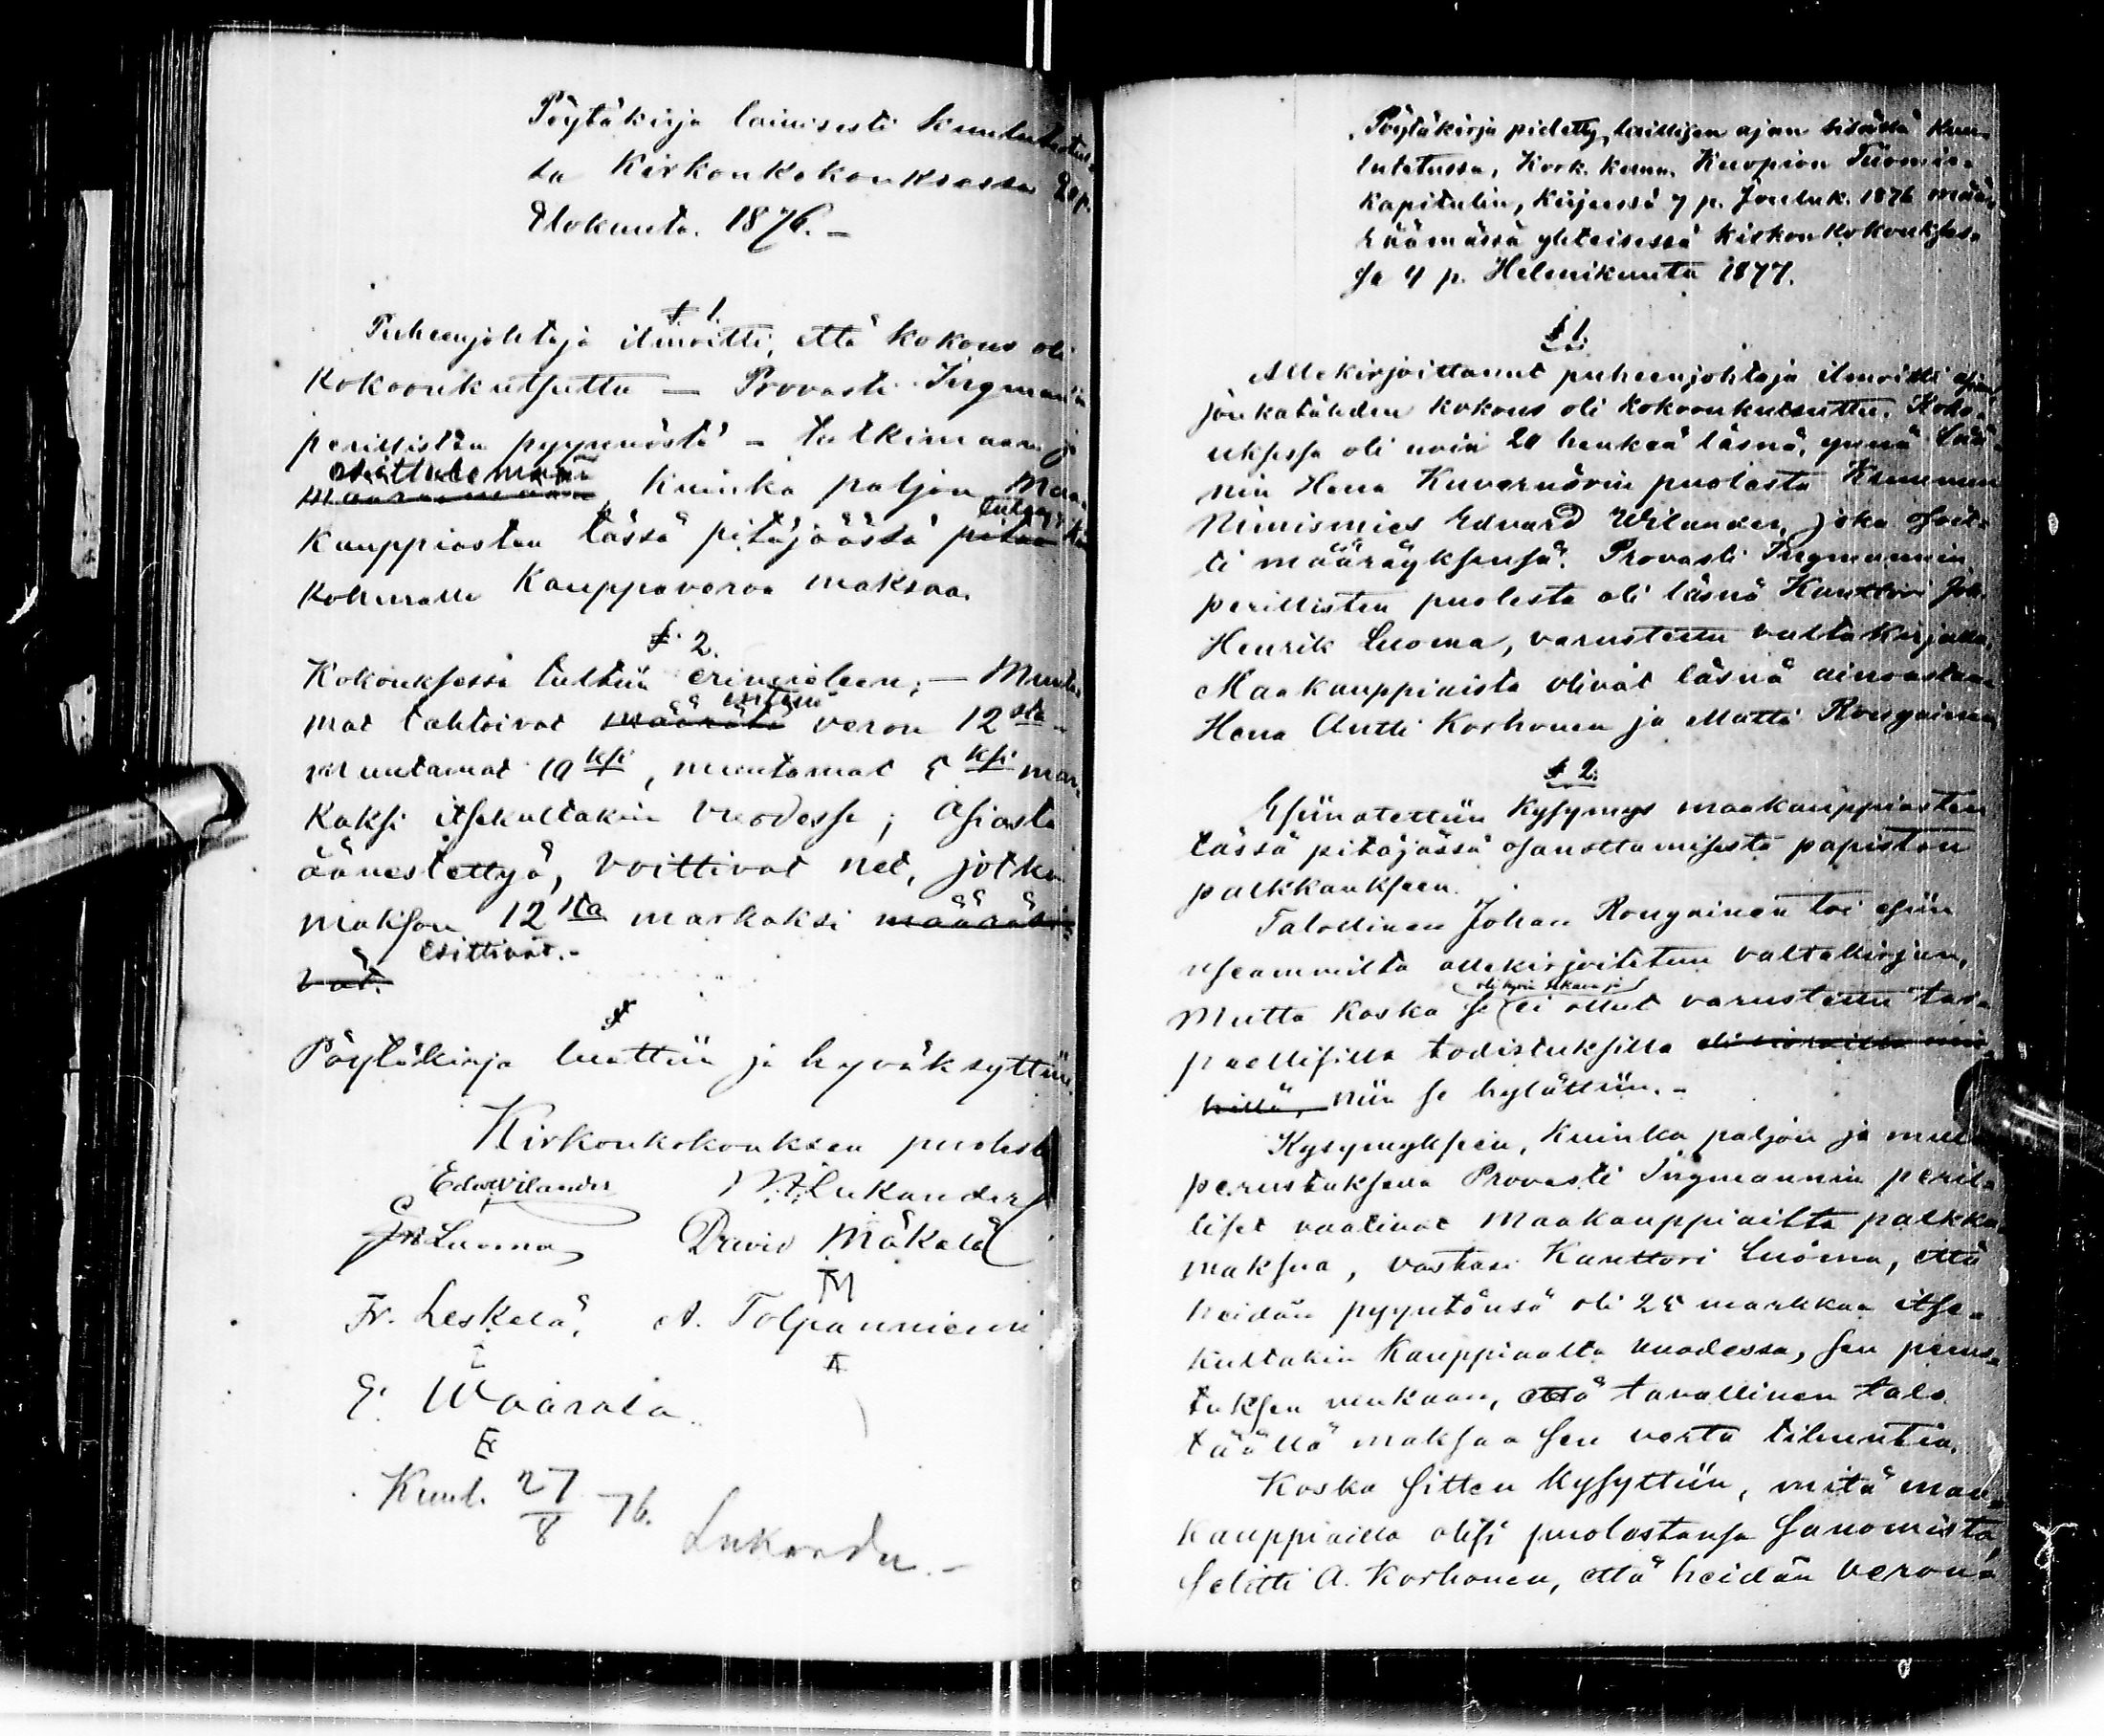 Pöytäkirja lainisesti kuulutetus-
sa Kirkonkokouksessa 20 p.
Elokuuta. 1876. –
§ 1.
Puheenjohtaja ilmoitti, että kokous oli
kokoonkutsuttu – Provasti Ingmanin
perillisten pyynnöstä – tutkimaan ja
osoittelemaan
määräämään, kuinka paljon Maa-
kauppiasten tässä pitäjäässä pitää
kohmalle Kauppaveroa maksaa.
§ 2.
Kokouksessa tultiin erimieleen; – Muuta-
mat tahtoivat määrätä veron 12 sta –
muutamat 10 ksi, muutamat 5 ksi mar-
kaksi itsekultakin vuodessa; Asiasta
äänestettyä, voittivat net, jotka
maksun 12 sta markaksi määräsi-
vät. esittivät. –
§
Pöytäkirja luettiin ja hyväksyttiin.
Kirkonkokouksen puolest
Edv Wilander M. Lukander
J H Luoma David Mäkelä
M
Fr. Leskelä, A. Tolpanniemi
E. Waarala
Kuul. 27/8 76.
Lukander. –
Pöytäkirja pidetty, laillisen ajan sisällä kuu-
lutetussa, Kork. kunn. Kuopion Tuomio-
kapitulin, kirjeessä 7 p. Jouluk. 1876 mää-
räämässä yhteisessä kirkonkokoukses-
sa 4 p. Helmikuuta 1877.
§ 1.
Allekirjoittanut puheenjohtaja ilmoitti asian,
jonkatähden kokous oli kokoonkutsuttu. Koko-
uksessa oli noin 20 henkeä läsnä, ynnä Lää-
nin Herra Kuvernörin puolesta Kruunun
Nimismies Edvard Wilander, joka osoit-
ti määräyksensä. Provasti Ingmannin
perillisten puolesta oli läsnä Kanttori Joh.
Henrik Luoma, varustettu valtakirjalla,
Maakauppiaista olivat läsnä ainoastaan
Herra Antti Korhonen ja Matti Rougainen
§ 2.
Esiinotettiin kysymys maakauppiasten
tässä pitäjässä osanottamisesta papiston
palkkaukseen.
Talollinen Johan Rougainen toi esiin
useammilta allekirjoitetun valtakirjan,
oli kyllä
Mutta koska se ei ollut varustettu tar-
peellisilla todistuksilla
niin se hylättiin. –
Kysymykseen, kuinka paljon ja millä
perustuksena Provasti Ingmannin peril-
liset vaativat Maakauppiailta palkka-
maksua, vastasi Kanttori Luoma, että
heidän pyyntönsä oli 25 markkaa itse-
kultakin Kauppiaalta vuodessa, sen perus-
tuksen mukaan, että tavallinen talo
täällä maksaa sen verta tihuntia.
Koska sitten kysyttiin, mitä maa-
kauppiailla olisi puolestansa sanomista,
selitti A. Korhonen, että heidän verona